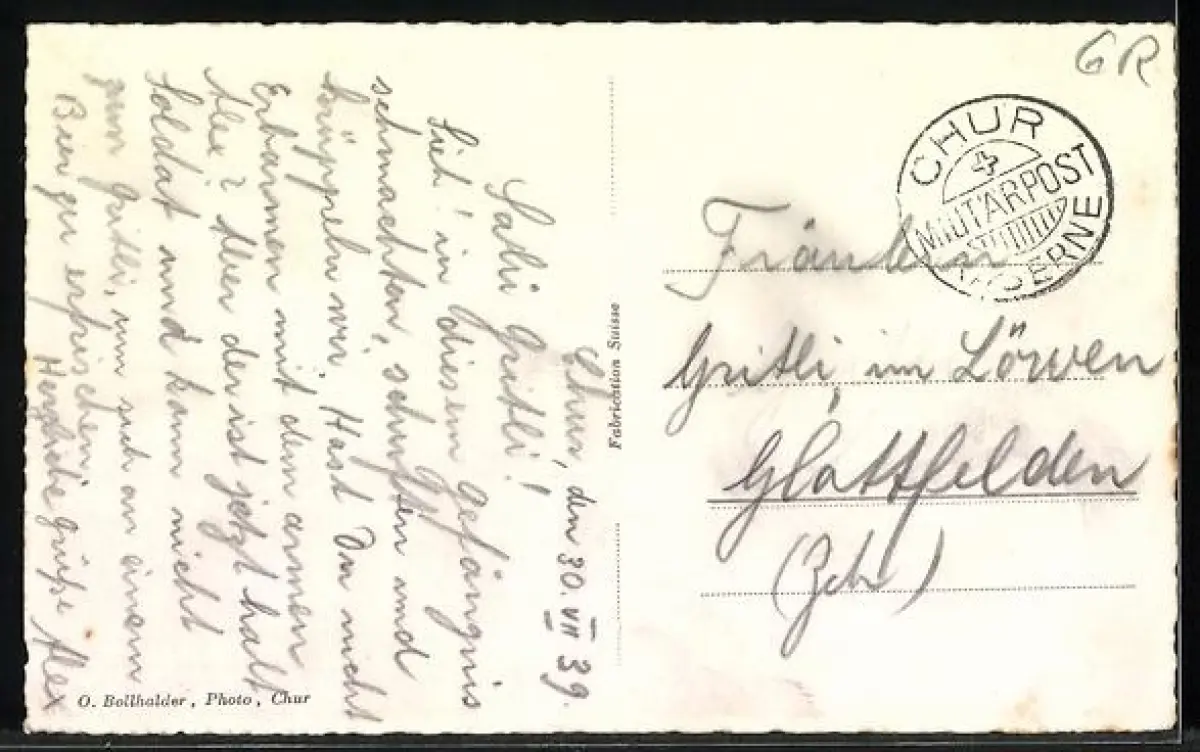 Chur, den 30. VII 39.
Sali Gritli!
Sieh! in diesem Gefängnis
schmachten, schuften und
krüppeln wir. Hast Du nicht
Erbarmen mit dem armen
Alex? Aber der ist jetzt halt
Soldat und kann nicht
zum Gritli, um sich an einem
Bier zu erfrischen.
Herzliche Grüße Alex
O. Bollhalder, Photo, Chur
Fabrication Suisse
GR
CHUR
MILITÄRPOST
KASERNE
Fräulein
Gritli, im Löwen
Glattfelden
(Zch)